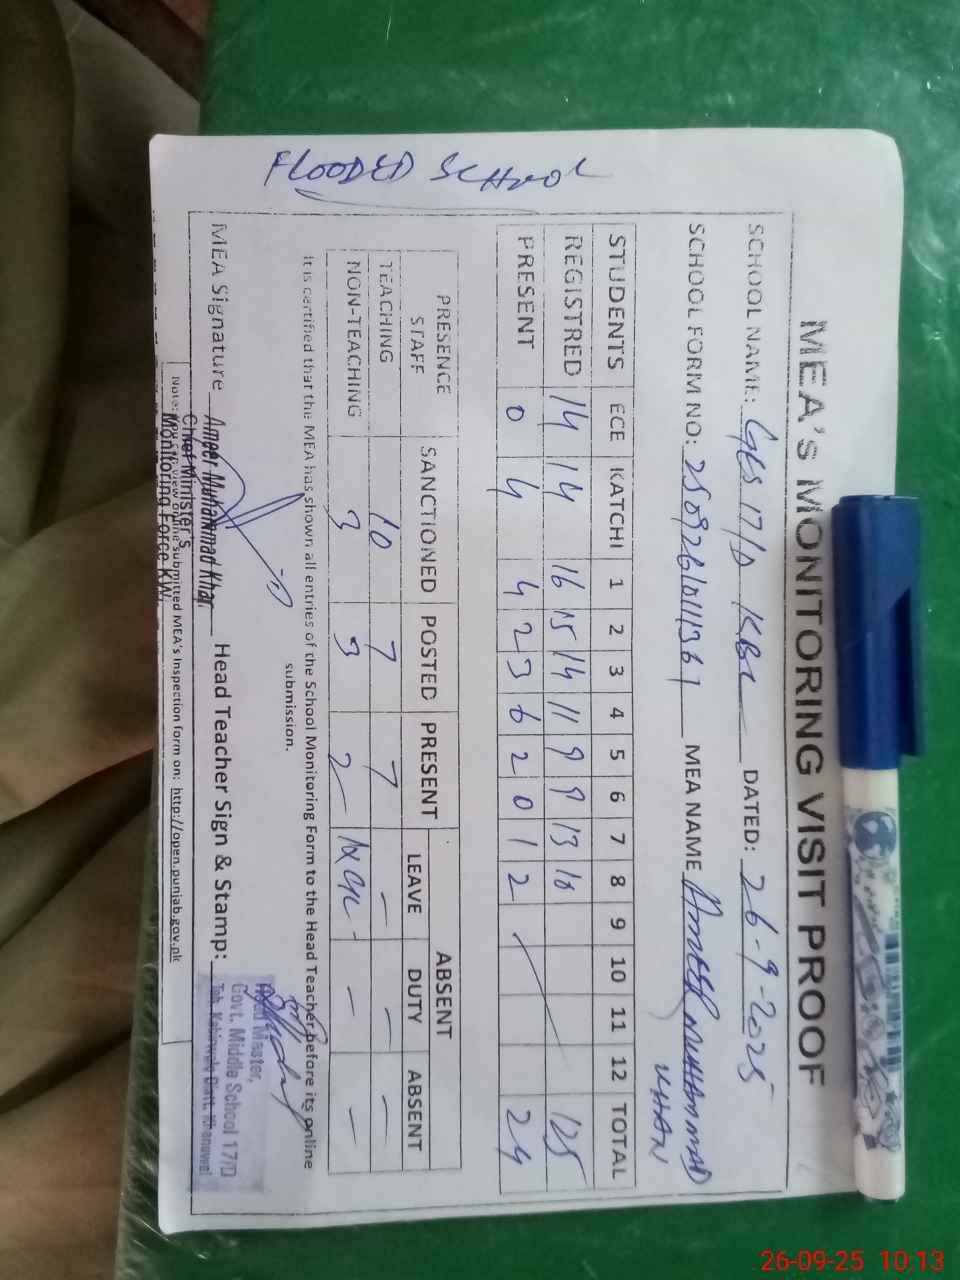 FLOODED SCHOOL
MEA'S MONITORING VISIT PROOF
SCHOOL NAME: GES 17/D KBW DATED: 26-9-2025
SCHOOL FORM NO: MEA NAME AMEER MUHAMMAD KHAN
STUDENTS ECE KATCHI 1 2 3 4 5 6 7 8 9 10 11 12 TOTAL
REGISTRED 14 14 16 15 14 11 9 9 13 10 125
PRESENT 0 4 4 2 3 6 2 0 1 2 24
PRESENCE STAFF SANCTIONED POSTED PRESENT ABSENT
LEAVE DUTY ABSENT
TEACHING 10 7 7 — — —
NON-TEACHING 3 3 2 — —
It is certified that the MEA has shown all entries of the School Monitoring Form to the Head Teacher before its online
submission.
MEA Signature Head Teacher Sign & Stamp:
Ameer Muhammad Khan
Chief Minister's
Monitoring Force KWL
Head Master,
Govt. Middle School 17/D
Teh. Kabirwala Distt. Khanewal
view online submitted MEA's Inspection form on: http://open.punjab.gov.pk
26-09-25 10:13